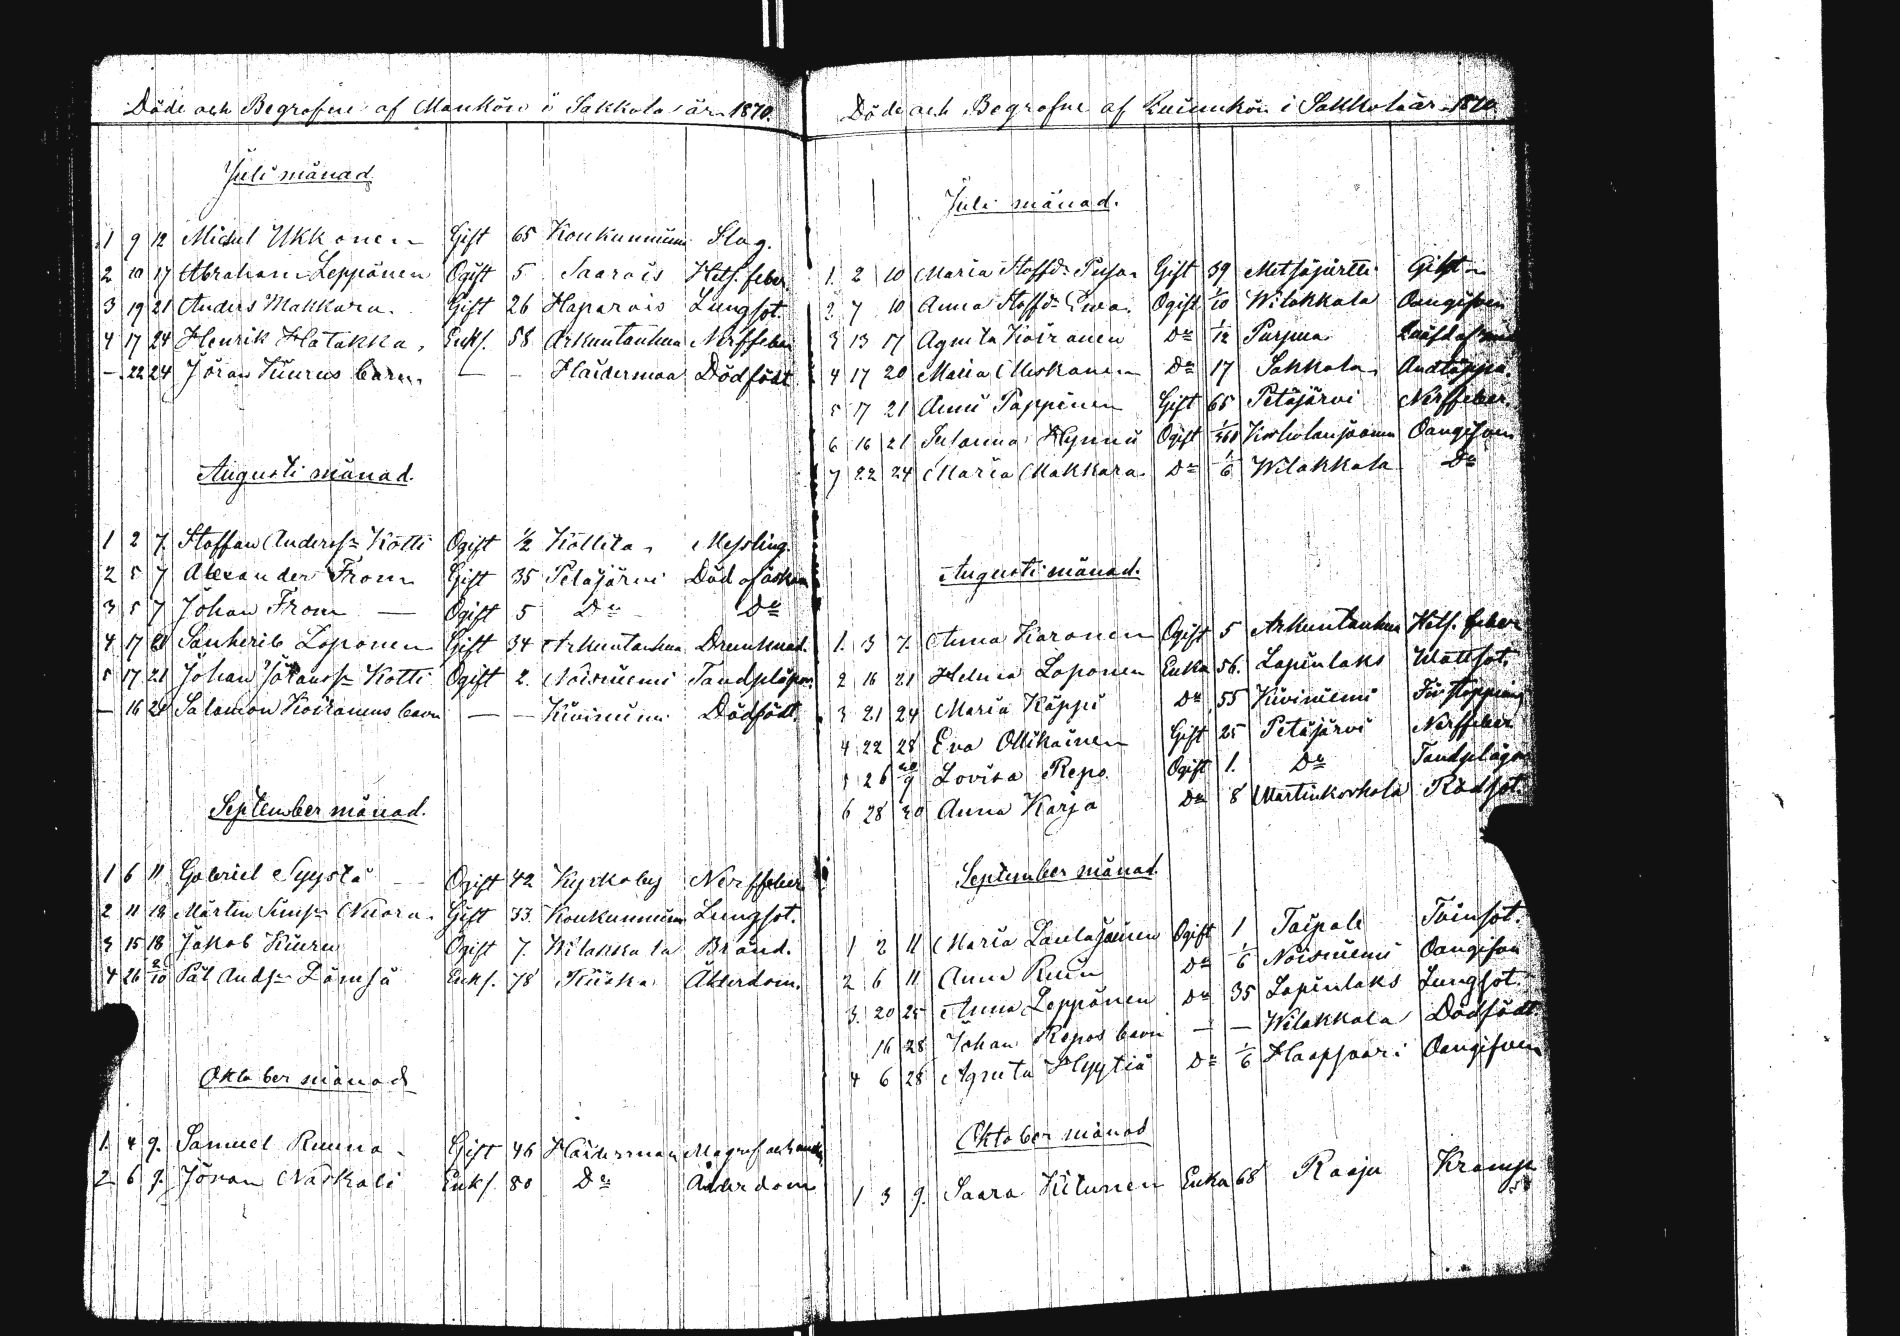 Döde och Begrafne af Mankön i Sakkola år 1870.
Juli månad
1 9 12 Michel Ukkonen Gift 65 Koukunniemi Slag.
2 10 17 Abraham Leppänen Ogift 5 Saarois Hets. feber
3 19 21 Anders Makkara. Gift 26 Haparais Lungsot.
4 17 24 Henrik Hatakka, Enkl. 58 Arkuntanhua Nerffeber
— 22 24 Jöran Kiurus barn. — — Haiderma Dödfödt
Augusti månad.
1 2 7. Staffan Anderss:n Kötti Ogift 1/2 Köllita Messling.
2 5 7 Alexander From Gift 35 Petäjärvi Död af åskan
3 5 7 Johan From — Ogift 5 D:o D:o
4 17 21 Sanherib Loponen Gift 34 Arkuntanhua Drunknad.
5 17 21 Johan Johanss:n Kotti Ogift 2. Noisniemi Tandplågor
— 16 28 Salomon Koiranens barn — — Kiviniemi Dödfödt
September månad.
1 6 11 Gabriel Nyystä Ogift 42 Kyrkoby Nerffeber
2 11 18 Mårten Sims:n Nuora. Gift 33. Koukunniemi Lungsot.
3 15 18 Jakob Kiuru Ogift 7. Wilakkala Brånd.
4 26 2/10 Pål Ands:n Lämsä Enkl. 78 Kiiska Ålderdom.
Oktober månad
1. 4 9. Samuel Ruuna Gift 46 Haiderman Magref och
2 6 9. Jöran Naskali Enkl. 80 D:o Ålderdom
Döde och Begrafne af Quinnkön i Sakkola år 1870.
Juli månad.
1. 2 10 Maria Staffd:r Pusa Gift 39 Metsäpirtti Gikt
2 7 10 Anna Staffd:r Ewa. Ogift 1/10 Wilakkala Oangifven
3 13 17 Agneta Koiranen D:o 1/12 Purpua
4 17 20 Maria Meskanen D:o 17 Sakkola Andtäppa.
5 17 21 Anni Pappinen Gift 65 Petäjärvi Nerffeber.
6 16 21 Susanna Hynni Ogift Korholanjaama Oangifven
7 22 24 Maria Makkara D:o 1/6 Wilakkala D:o
Augusti månad.
1. 3 7. Anna Karonen Ogift 5 Arkuntanhua Hets. feber
2 16 21 Helena Loponen Enka 56. Lapinlaks Wattsot.
3 21 24 Maria Käppi D:o 55 Kiviniemi Förstoppning
4 22 28 Eva Ollikainen Gift 25 Petäjärvi Nerffeber
5 26 9 Lovisa Repo. Ogift 1. D:o Tandplågor
6 28 30 Anna Karja D:o 8 Martinkorhola Rödsot.
September månad.
1 2 11 Maria Laulajainen Ogift 1 Taipale Tvinsot.
2 6 11 Anna Ruin D:o 1/6 Noisniemi Oangifven
3. 20 25 Anna Leppänen D:o 35 Lapinlaks Lungsot.
16 28 Johan Repos barn — — Wilakkala Dödfödt
4 6 28 Agneta Hyytiä D:o 1/6 Haapsaari Oangifven
Oktober månad
1 3 9. Saara Kiilunen Enka 68 Raaju Kramp